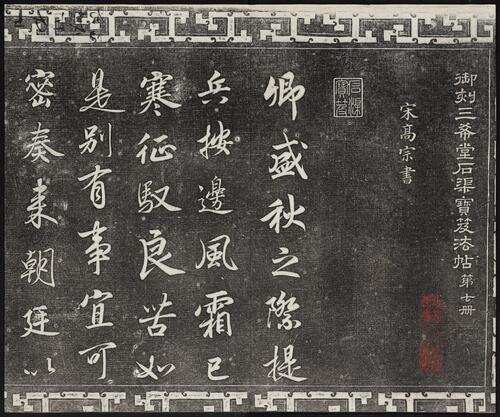 御刻三希堂石渠寶笈法帖第七册
宋高宗書
石渠寶笈
卿盛秋之際提
兵按邊風霜已
寒征馭良苦如
是别有事宜可
密奏来朝廷以